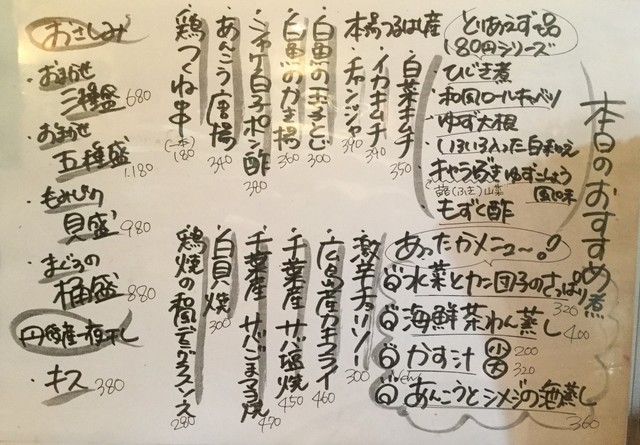 本日のおすすめ
とりあえず一品
180円シリーズ
ひじき煮
和風ロールキャベツ
ゆず大根
いろいろ入った白まめえ
きゃらぶき ゆずこしょう
(ふき) 山菜
風味
もずく酢
あったかメニュー!
水菜とカニ団子のさっぱり煮 320
海鮮茶わん蒸し 400
かす汁 小 200
大 320
あんこうとシメジの酒蒸し 360
本場つるはし産
白菜キムチ 350
イカキムチ 390
チャンジャ 390
白魚の玉子とじ 300
白魚のかき揚 360
シャケ白子ポン酢 380
あんこう唐揚 340
鶏つくね串 (一本) 180
激辛チョリソー 300
広島産カキフライ 460
千葉産サバ塩焼 450
千葉産サバごまマヨ焼 470
白貝焼 300
鶏焼の和風デミグラスソース 280
おさしみ
・おまかせ
三種盛 680
・おまかせ
五種盛 1,180
・もめびり
貝盛 980
・まぐろの
桶盛 880
一夜干し
・キス 380